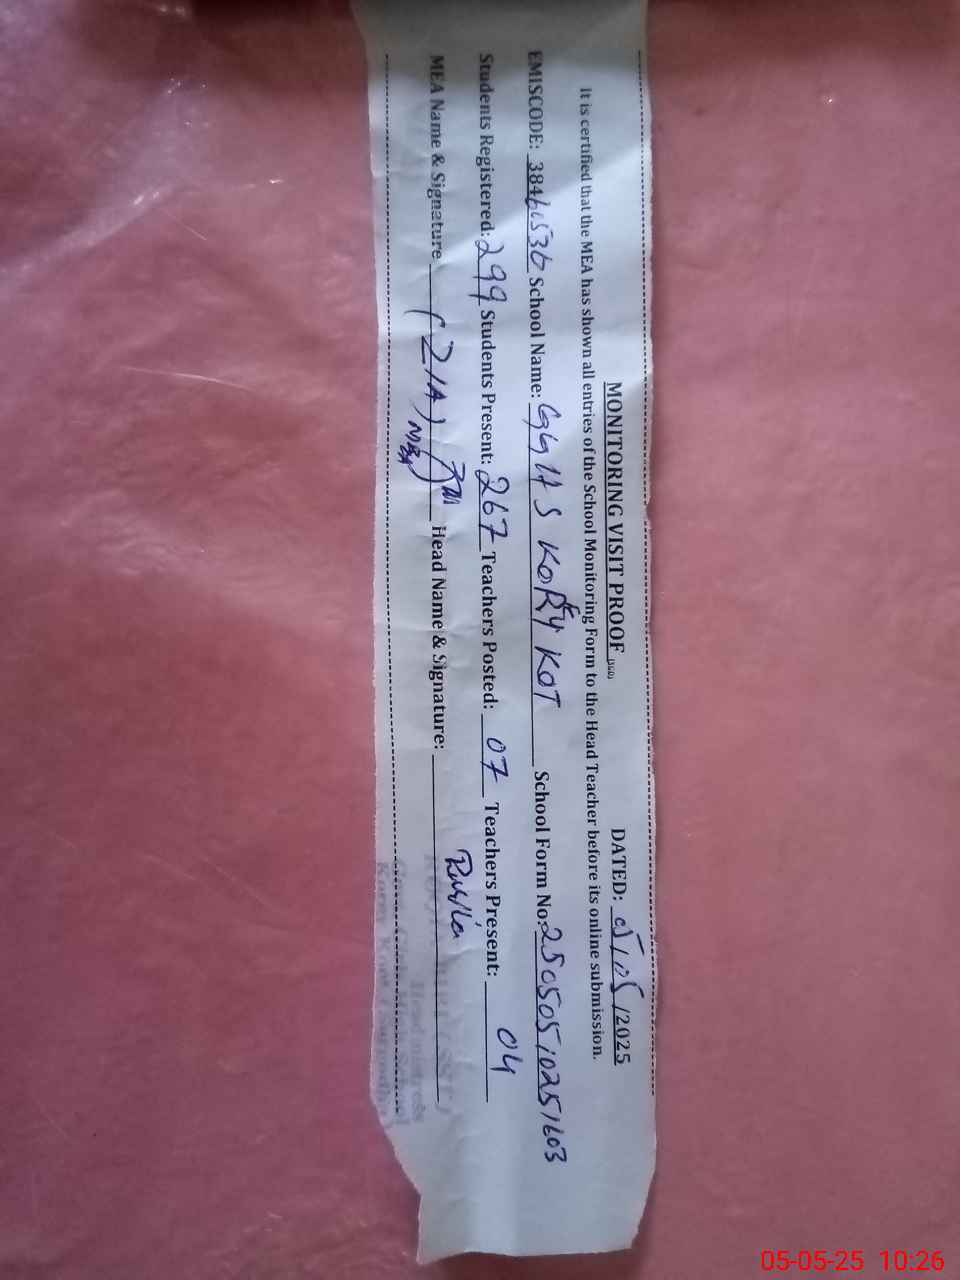 MONITORING VISIT PROOF DATED: 05/05/2025
It is certified that the MEA has shown all entries of the School Monitoring Form to the Head Teacher before its online submission.
EMISCODE: School Name: GGHS KOREY KOT School Form No:
Students Registered: 299 Students Present: 267 Teachers Posted: 07 Teachers Present: 04
MEA Name & Signature (ZIA) Head Name & Signature:
Headmistress
05-05-25 10:26